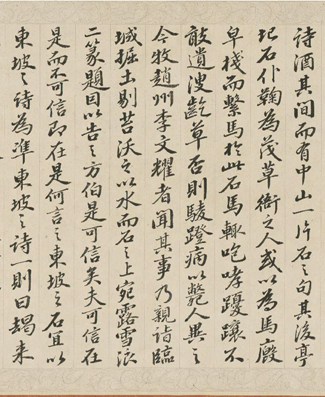 詩酒其間而有中山一片石之句其後亭
圮石仆鞠為茂草衛之人或以為馬廄
皁棧而繫馬於此石馬輒咆哮不
敢遺溲齕草否則蹬病以斃人異之
今牧趙州李文耀者聞其事乃親詣臨
城掘土剔苔沃之以水而石之上宛露雪浪
二篆題因以告之方伯是可信矣夫可信在
是而不可信即在是何言之東坡之石宜以
東坡之詩為準東坡之詩一則曰朅来